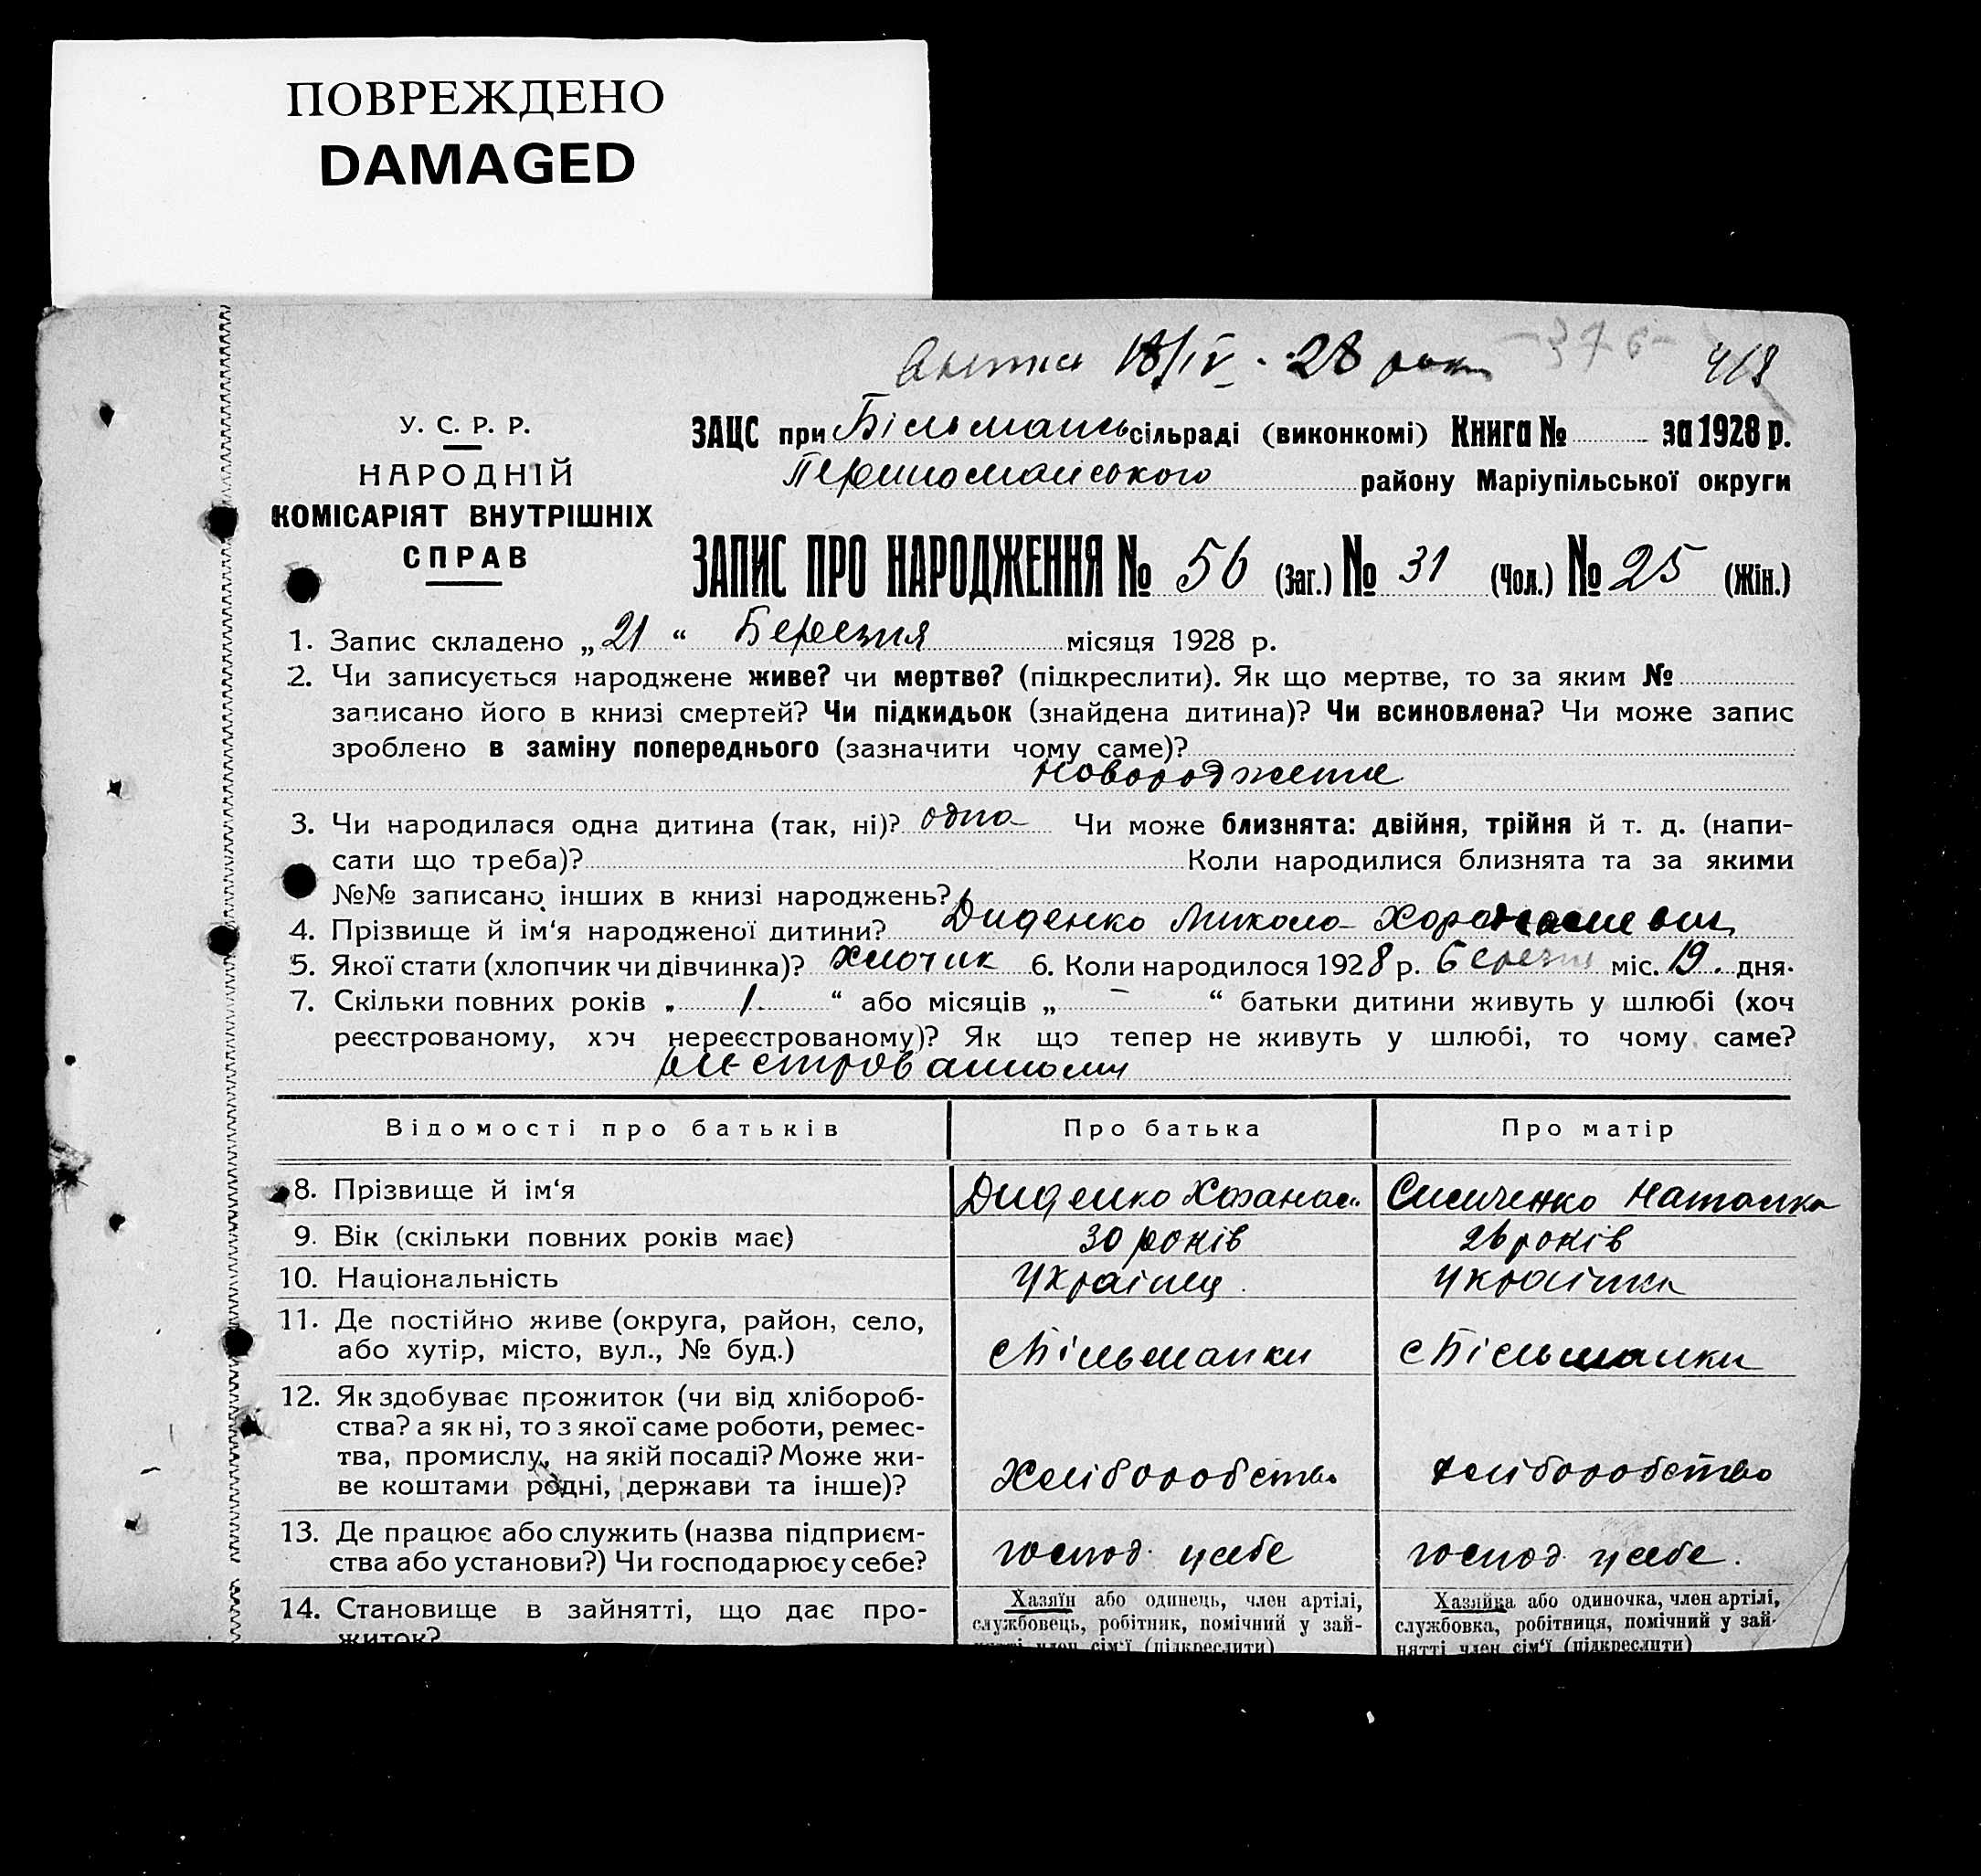 ПОВРЕЖДЕНО
DAMAGED
18/IV - 28 року -376-
У. С. Р. Р.
НАРОДНІЙ
КОМІСАРІЯТ ВНУТРІШНІХ
СПРАВ
ЗАЦС при Більмань сільраді (виконкомі) Книга № за 1928 р.
Першомайського району Маріупільської округи
ЗАПИС ПРО НАРОДЖЕННЯ № 56 (Заг.) № 31 (Чол.) № 25 (Жін.)
1. Запис складено „21“ Березня місяця 1928 р.
2. Чи записується народжене живе? чи мертве? (підкреслити). Як що мертве, то за яким №
записано його в книзі смертей? Чи підкидьок (знайдена дитина)? Чи всиновлена? Чи може запис
зроблено в заміну попереднього (зазначити чому саме)?
новородженне
3. Чи народилася одна дитина (так, ні)? одна Чи може близнята: двійня, трійня й т. д. (напи-
сати що треба)? Коли народилися близнята та за якими
№№ записано інших в книзі народжень?
4. Прізвище й ім‘я народженої дитини? Диденко Микола
5. Якої статі (хлопчик чи дівчинка)? Хлочик 6. Коли народилося 1928 р. березня міс. 19. дня.
7. Скільки повних років „ 1. “ або місяців „ – “ батьки дитини живуть у шлюбі (хоч
реєстрованому, хоч нереєстрованому)? Як що тепер не живуть у шлюбі, то чому саме?
Відомості про батьків Про батька Про матір
8. Прізвище й ім‘я Диденко Хфанас. Наталка
9. Вік (скільки повних років має) 30 років 26 років
10. Національність Українец. Українка
11. Де постійно живе (округа, район, село,
або хутір, місто, вул., № буд.) с Більманки с Більманки
12. Як здобуває прожиток (чи від хлібороб-
ства? а як ні, то з якої саме роботи, ремес-
тва, промислу, на якій посаді? Може жи-
ве коштами родні, держави та інше)? Хліборобство хліборобство
13. Де працює або служить (назва підприєм-
ства або установи?) Чи господарює у себе? господ. усебе господ усебе.
14. Становище в зайнятті, що дає про-
житок?
Хазяїн або одинець, член артілі,
службовець, робітник, помічний у зай-
нятті член сім‘ї (підкреслити)
Хазяйка або одиночка, член артілі,
службовка, робітниця, помічний у зай-
нятті член сім‘ї (підкреслити)